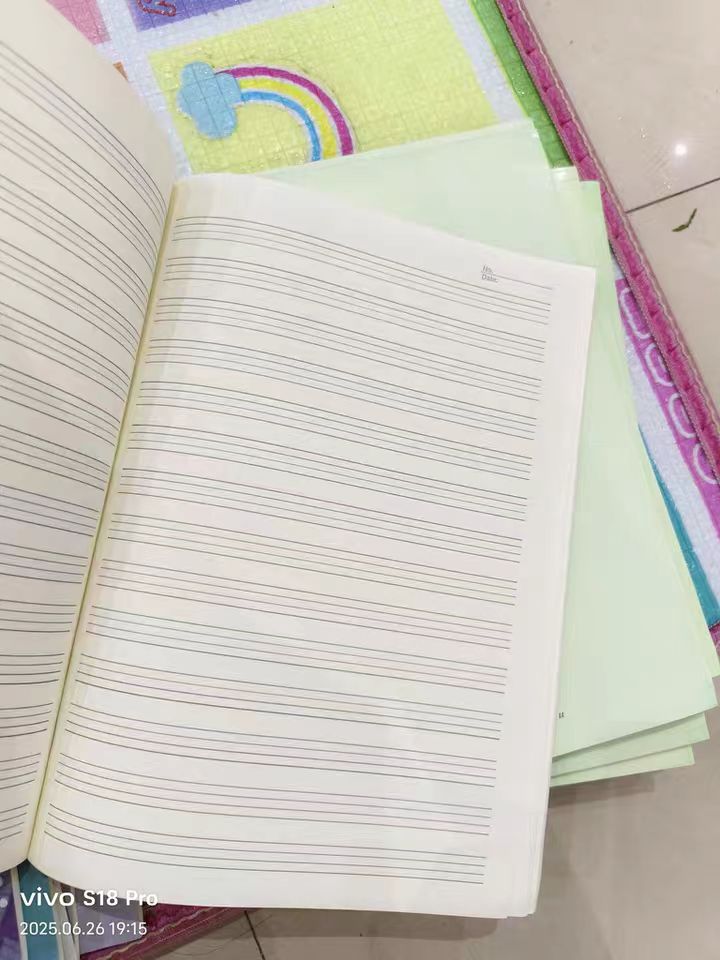 No.
Date.
vivo S18 Pro
2025.06.26 19:15